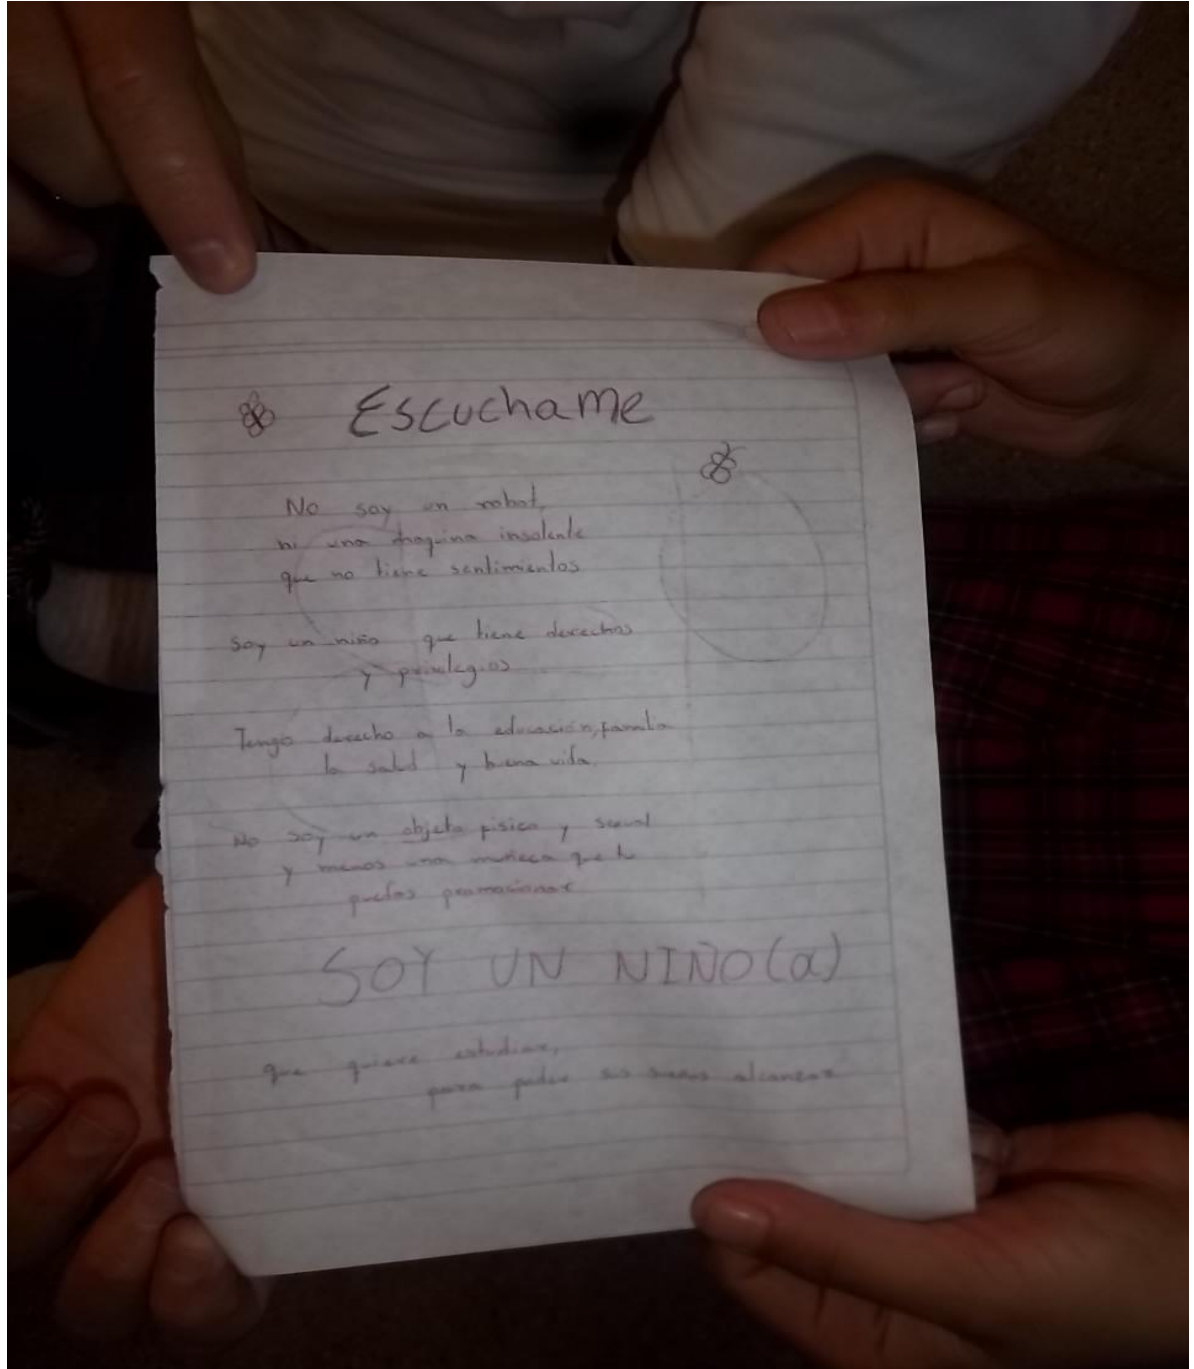 Escuchame
No soy un robot,
ni una maquina insolente
que no tiene sentimientos
Soy un niño que tiene derechos
y privilegios
Tengo derecho a la educación, familia
la salud y buena vida.
No soy un objeto fisico y sexual
y menos una muñeca que tu
puedas promocionar
SOY UN NIÑO(a)
que quiere estudiar,
para poder sus sueños alcanzar